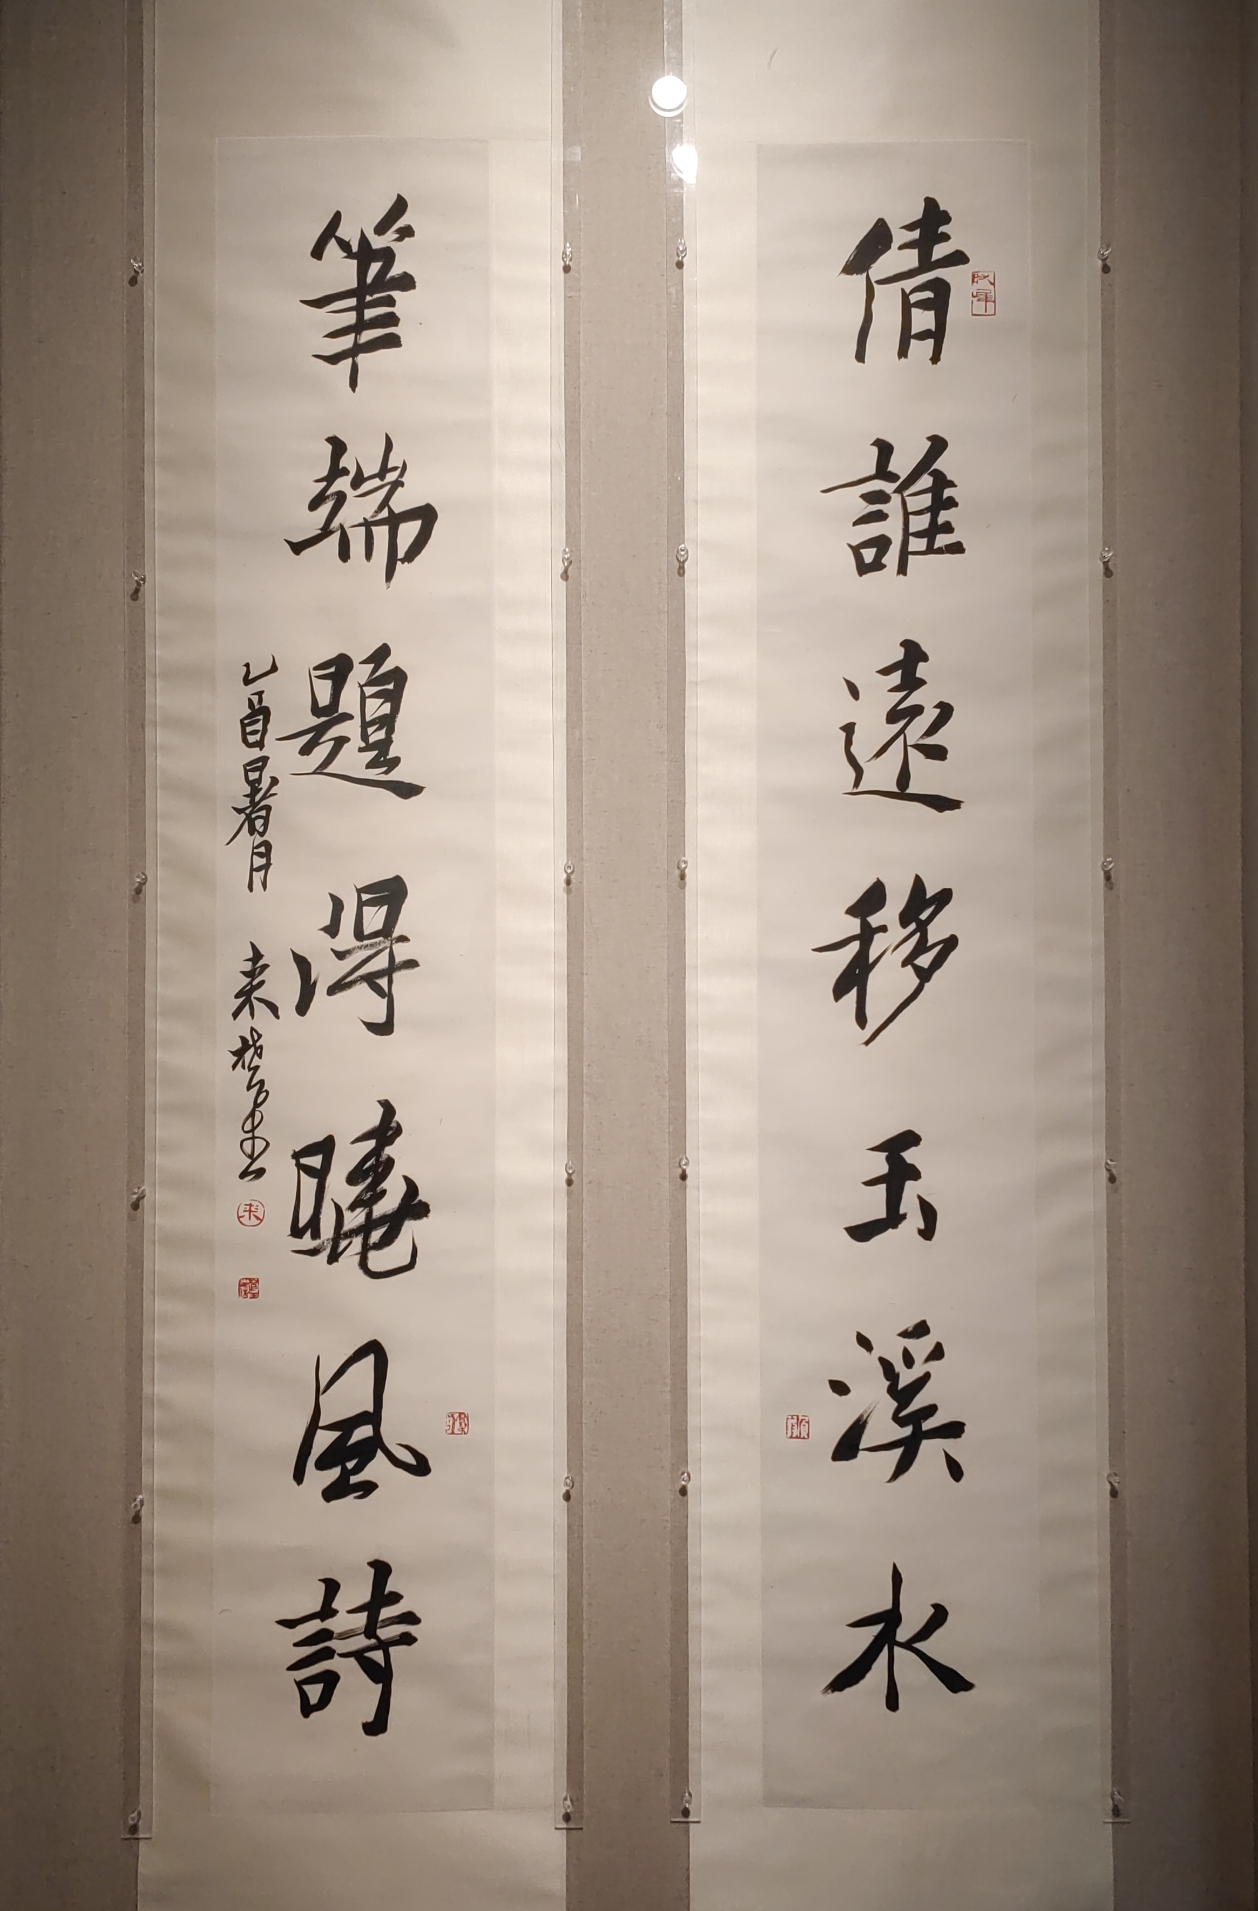 倩誰遠移玉溪水
筆端題得曉風詩
乙酉暑月 来楚生
来